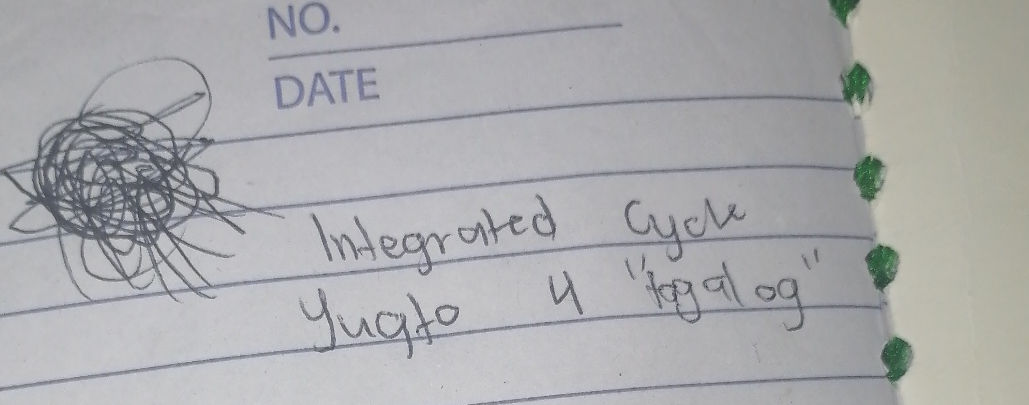 NO.
DATE
Integrated Cycle
Yugto 4 "tagalog"